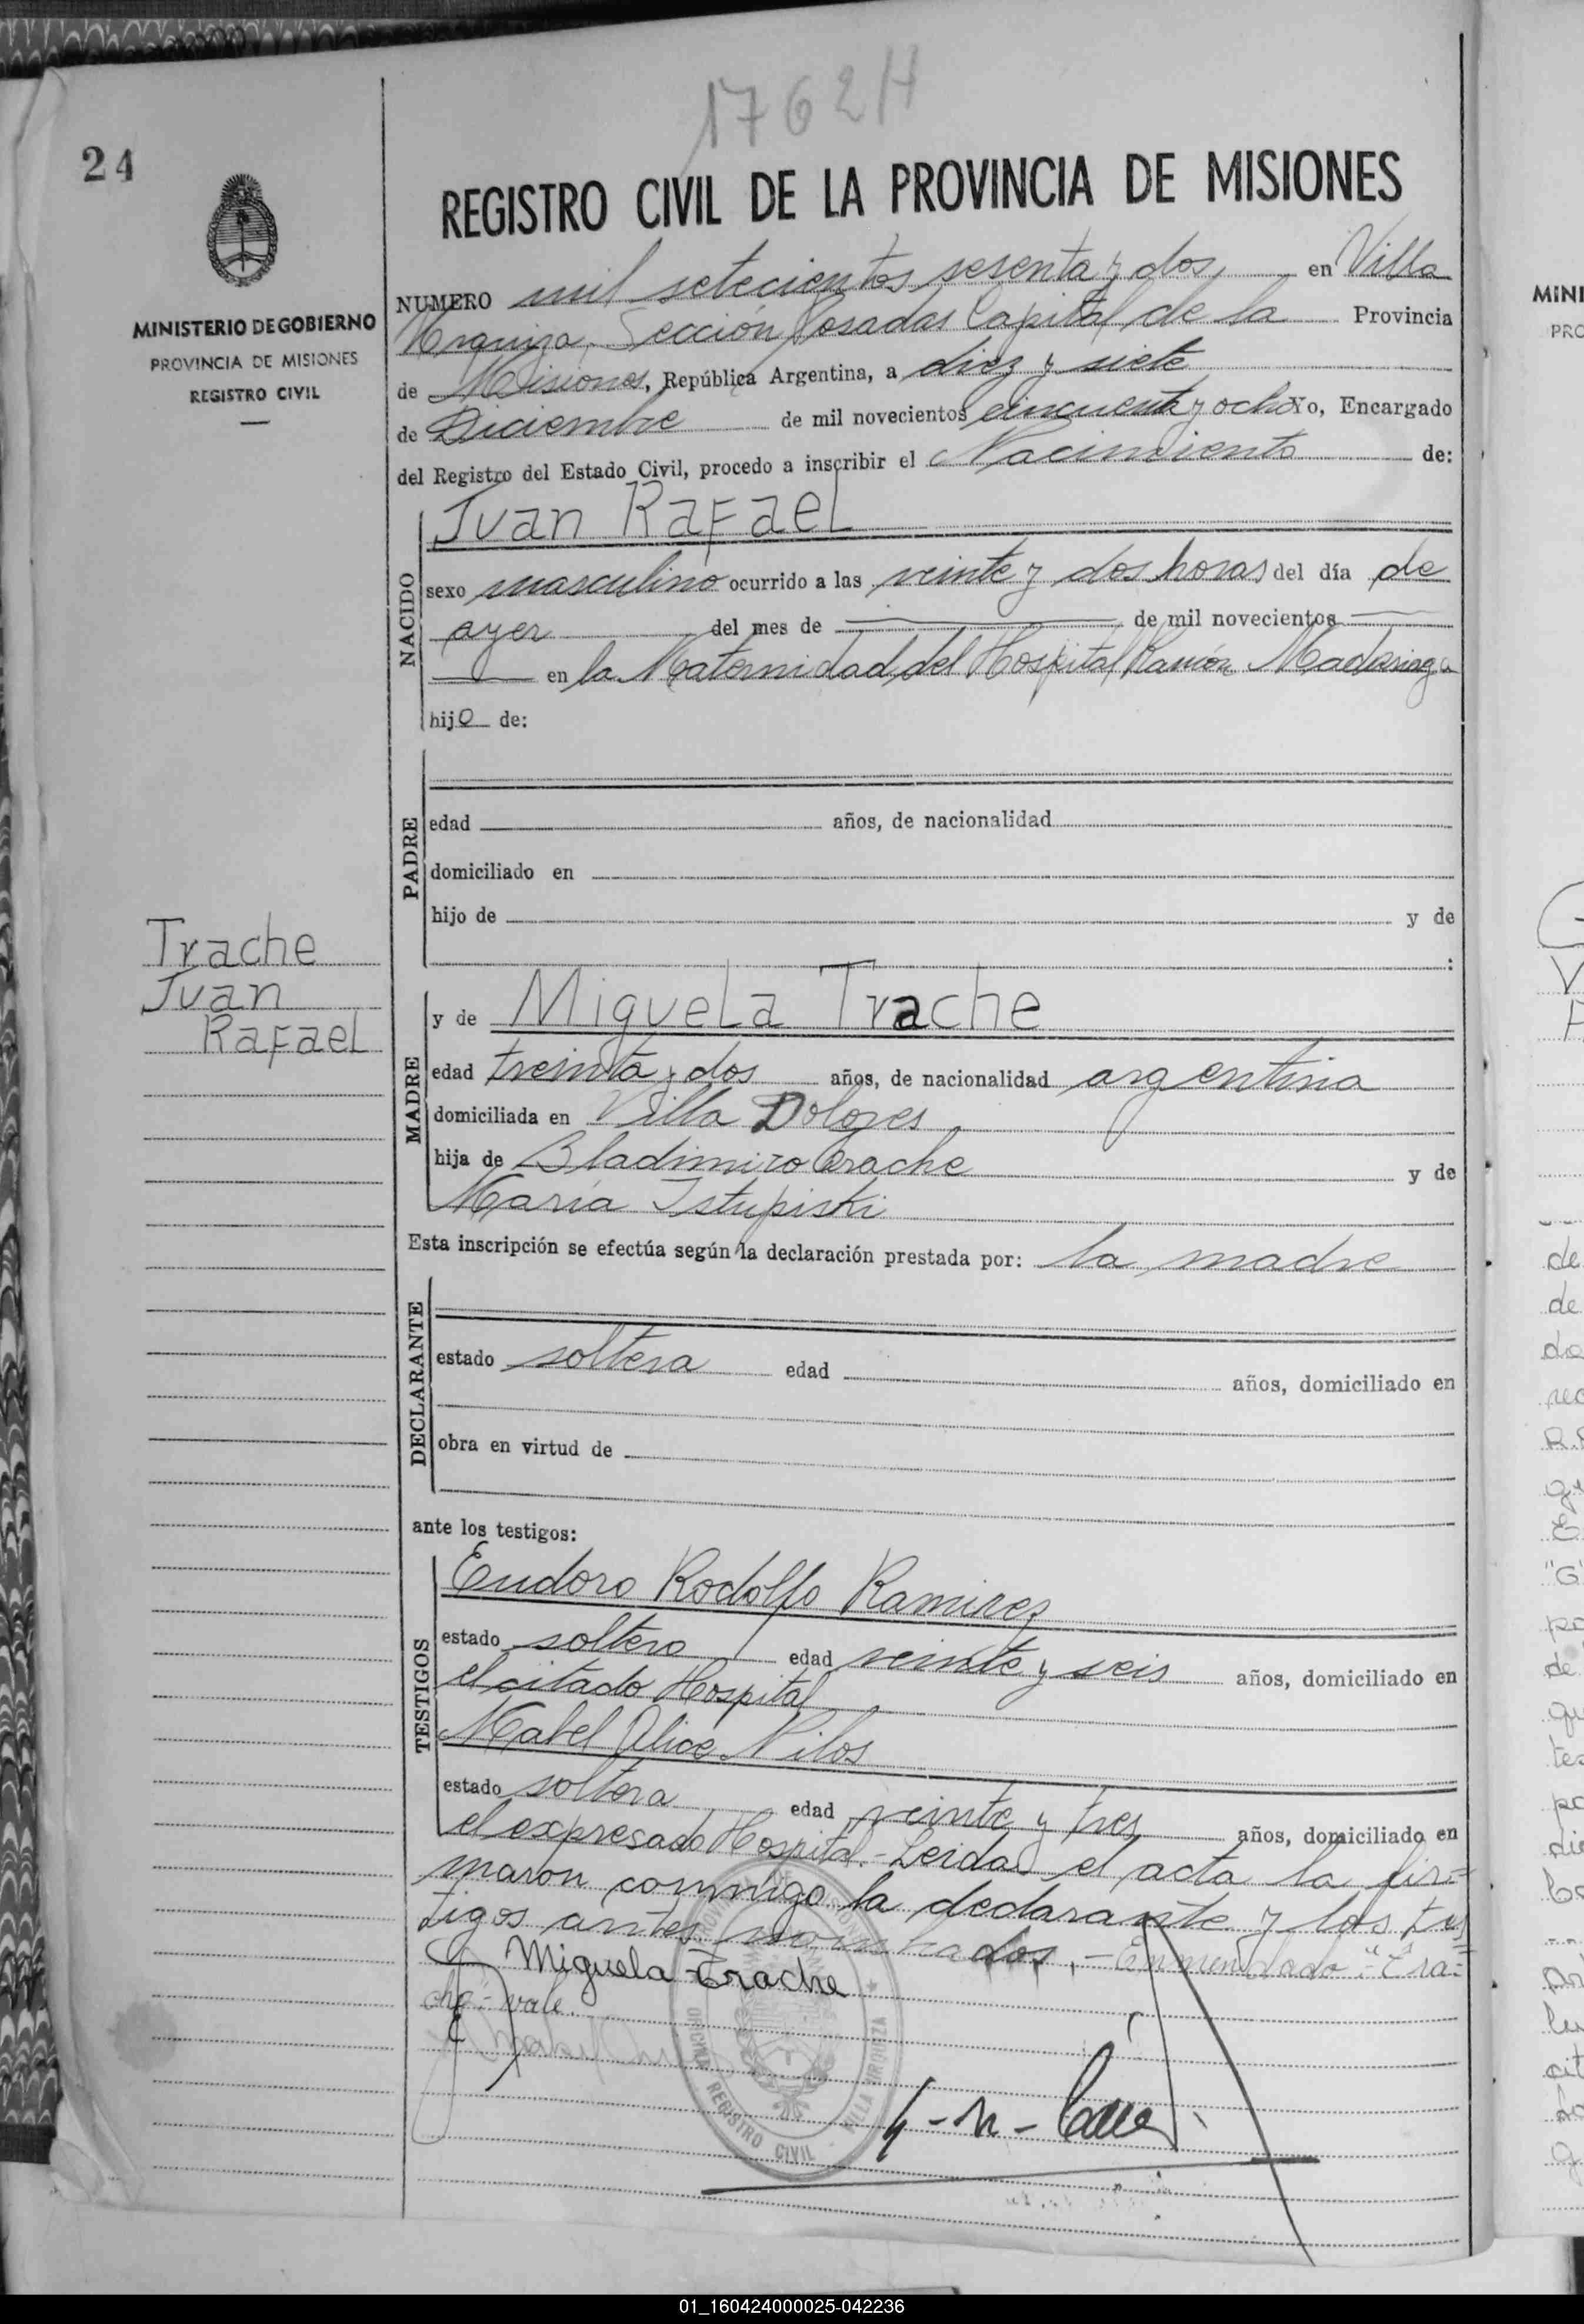 1762H
24
REGISTRO CIVIL DE LA PROVINCIA DE MISIONES
MINISTERIO DE GOBIERNO
PROVINCIA DE MISIONES
REGISTRO CIVIL
NUMERO mil setecientos sesenta y dos en Villa
Urquiza, Sección Posadas Capital de la Provincia
de Misiones, República Argentina, a diez y siete
de Diciembre de mil novecientos cincuenta y ocho Yo, Encargado
del Registro del Estado Civil, procedo a inscribir el Nacimiento de:
NACIDO
Juan Rafael
sexo masculino ocurrido a las veinte y dos horas del día de
ayer del mes de de mil novecientos
en la Maternidad del Hospital Ramón Madariaga
hijo de:
PADRE
edad años, de nacionalidad
domiciliado en
hijo de y de
:
Trache
Juan
Rafael
MADRE
y de Miguela Trache
edad treinta y dos años, de nacionalidad argentina
domiciliada en Villa Dolores
hija de Bladimiro Trache y de
María Istupiski
Esta inscripción se efectúa según la declaración prestada por: la madre
DECLARANTE
estado soltera edad años, domiciliado en
obra en virtud de
ante los testigos:
TESTIGOS
Eudoro Rodolfo Ramirez
estado soltero edad veinte y seis años, domiciliado en
el citado Hospital
Mabel Alice Nilos
estado soltera edad veinte y tres años, domiciliado en
el expresado Hospital.- Leida el acta la fir=
maron conmigo la declarante y los tes
tigos antes nombrados.- Enmendado: "Tra=
che"- vale.
Miguela Trache
OFICINA REGISTRO CIVIL VILLA URQUIZA
MINI
PRO
01_160424000025-042236